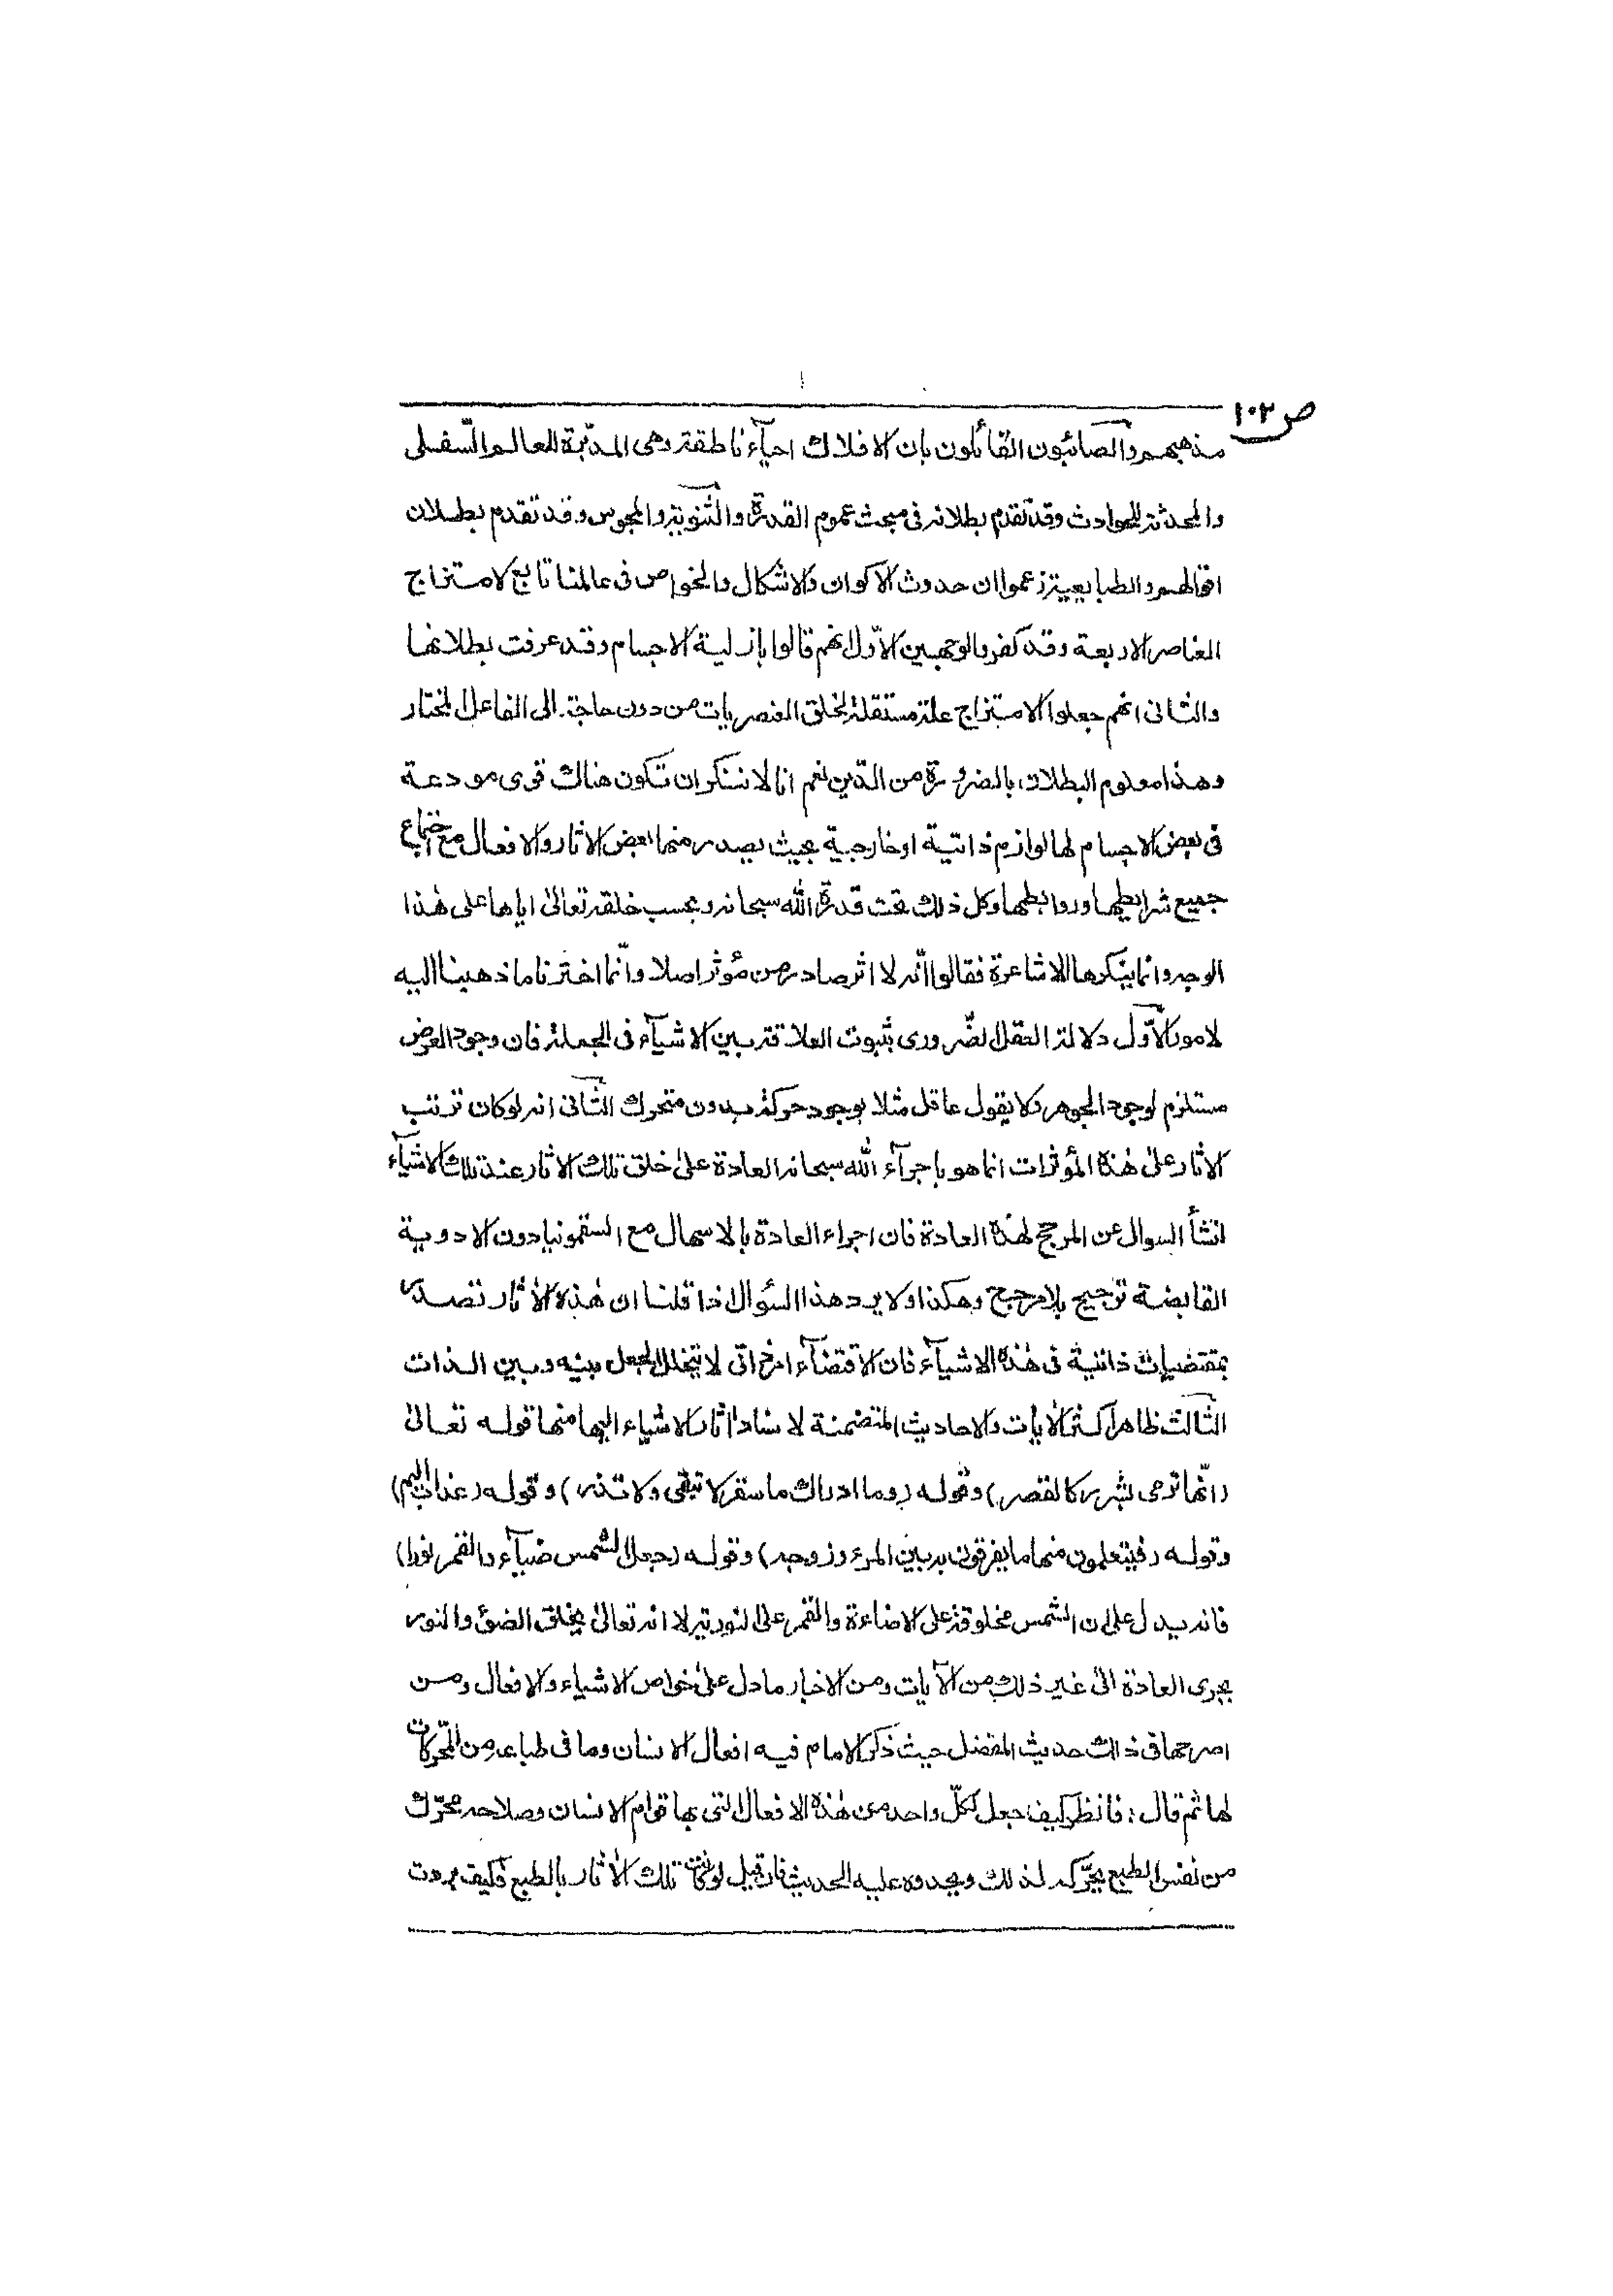 ص ١٠٢
مذهبهم والصائبون القائلون بان الافلاك احيآء ناطقة وهى المدبّرة للعالم السّفلى
والمحدثة للحوادث وقد تقدم بطلانه فى مبحث عموم القدرة والثنوية والمجوس وقد تقدم بطلان
اقوالهم والطبايعية زعموا ان حدوث الاكوان والاشكال والخواص فى عالمنا تابع لامتزاج
العناصر الاربعة وقد كفروا لوجهين الاوّل انهم قالوا بازلية الاجسام وقد عرفت بطلانها
والثانى انهم جعلوا الامتزاج علة مستقلة لخلق العنصريات من دون حاجة الى الفاعل المختار
وهذا معلوم البطلان بالضرورة من الدّين نعم انا لا ننكر ان تكون هناك قوى مودعة
فى بعض الاجسام لها لوازم ذاتية او خارجية بحيث يصدر منها بعض الاثار والافعال مع اجتماع
جميع شرايطها وروابطها وكل ذلك تحت قدرة الله سبحانه وبحسب خلقه تعالىٰ اياها على هٰذا
الوجه وانما ينكرها الاشاعرة فقالوا انّه لا اثر صادر من مؤثر اصلا وانّما اخترنا ما ذهبنا اليه
لامور الاوّل دلالة العقل الضّرورى بثبوت العلاقة بين الاشيآء فى الجملة فان وجود العرض
مستلزم لوجود الجوهر ولا يقول عاقل مثلا بوجود حركة بدون متحرك الثانى انه لو كان ترتب
الاثار علىٰ هٰذه المؤثرات انما هو باجرآء الله سبحانه العادة علىٰ خلق تلك الاثار عند تلك الاشيآء
انشأ السوال عن المرجح لهٰذه العادة فان اجراء العادة بالاسهال مع السقمونيا دون الادوية
القابضة ترجيح بلا مرجح وهكذا ولا يرد هذا السؤال اذا قلنا ان هٰذه الاٰثار تصدر
بمقتضيات ذاتية فى هٰذه الاشيآء فان الاقتضآء امر ذاتى لا يتخلل الجعل بينه وبين الذات
الثالث ظاهر اكثر الاٰيات والاحاديث المتضمنة لاسناد اٰثار الاشياء اليها منها قوله تعالىٰ
(انّها ترمى بشرر كالقصر) وقوله (وما ادراك ما سقر لا تبقى ولا تذر) وقوله (عذاب اليم)
وقوله (فيتعلمون منهما ما يفرقون به بين المرء وزوجه) وقوله (جعل الشمس ضيآء والقمر نورا)
فانه يدل على ان الشمس مخلوقة على الاضاءة والقمر على النورية لا انه تعالىٰ يخلق الضوٴ والنور
بجرى العادة الىٰ غير ذلك من الآيات ومن الاخبار ما دل علىٰ خواص الاشياء والافعال ومن
اصرحها فى ذالك حديث المفضل حيث ذكر الامام فيه افعال الانسان وما فى طباعه من المحّركات
لها ثم قال: فانظر كيف جعل لكلّ واحد من هٰذه الافعال التى بها قوام الانسان وصلاحه محرّك
من نفس الطبع يحرّكه لذلك ويحدوه عليه الحديث فان قيل لو كانت تلك الاٰثار بالطبع فكيف